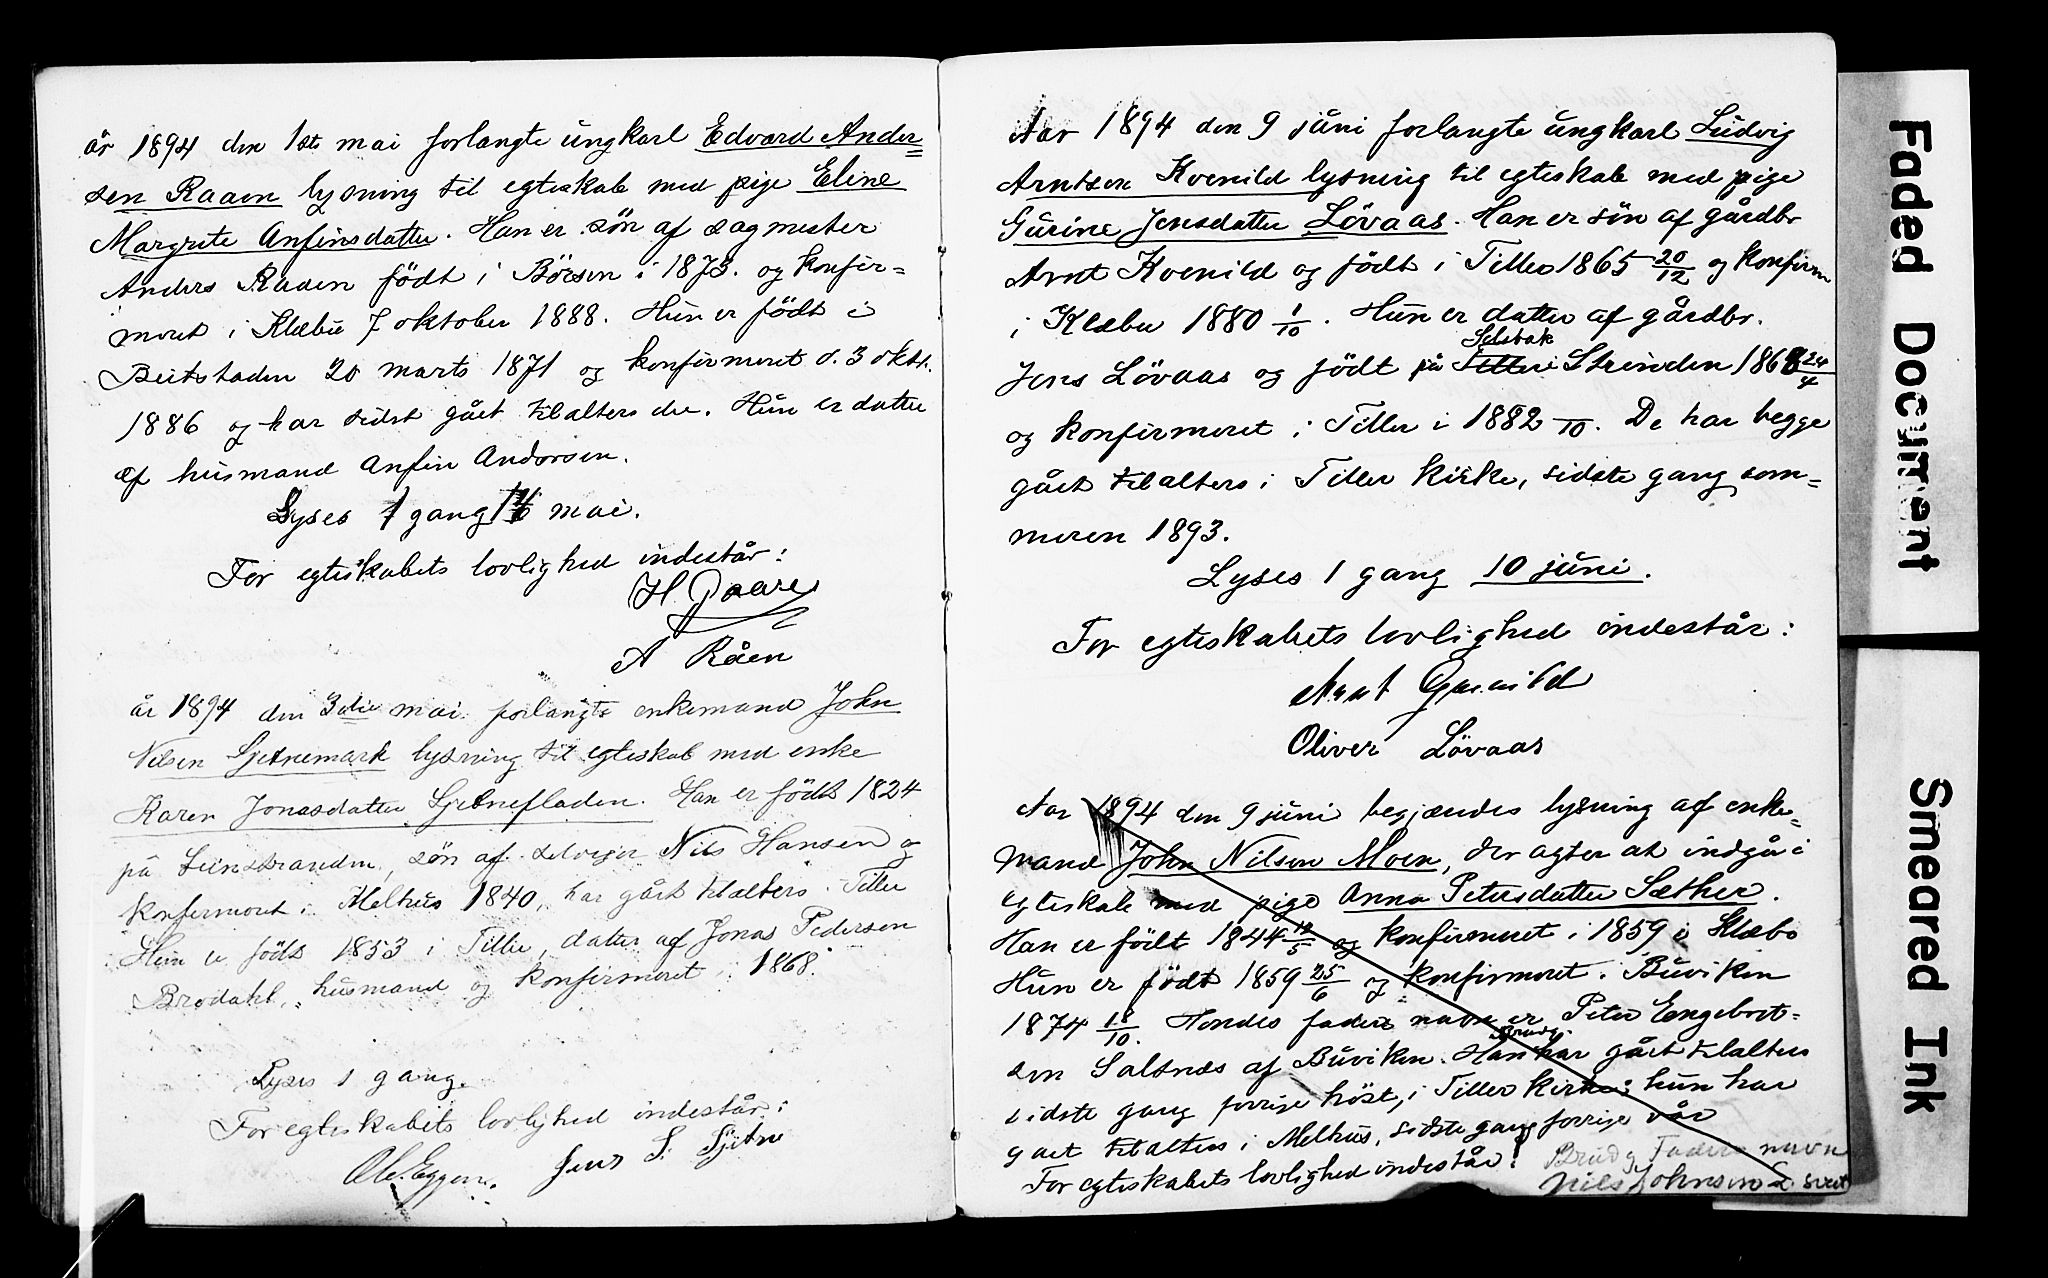 år 1894 den 1ste mai forlangte ungkarl Edvard Ander=
sen Raaen lysning til egteskab med pige Eline
Margrete Anfinsdatter. Han er søn af sagmester
Anders Raaen født i Børsen i 1873. og konfir=
meret i Klæbu 7 oktober 1888. Hun er født i
Beitstaden 20 marts 1871 og konfirmeret d. 3 oktb.
1886 og har sidst gået til alters der. Hun er datter
af husmand Anfin Andersen.
Lyses 1 gang mai.
For egteskabets lovlighed indestår:
H. Paare
A Råen
år 1894 den 3die mai forlangte enkemand John
Nilsen Sjetnemark lysning til egteskab med enke
Karen Jonasdatter Sjetnefladen. Han er født 1824
på Leinstranden, søn af selveier Nils Hansen og
konfirmeret i Melhus 1840, har gået til alters i Tiller
Hun er født 1853 i Tiller, datter af Jonas Pedersen
Brødahl, husmand og konfirmeret i 1868.
Lyses 1 gang.
For egteskabets lovlighed indestår:
Ole Eggen. Jens S. Sjetne
Aar 1894 den 9 juni forlangte ungkarl Ludvig
Arntsen Kvenild lysning til egteskab med pige
Gurine Jensdatter Løvaas. Han er søn af gårdbr
Arnt Kvenild og født i Tiller 1865 20/12 og konfirm
i Klæbu 1880 1/10. Hun er datter af gårdbr.
Selsbak
Jens Løvaas og født på Tiller i Strinden 1868 24/4
og konfirmeret i Tiller i 1882 /10. De har begge
gået til alters i Tiller kirke, sidste gang som=
meren 1893.
Lyses 1 gang 10 juni.
For egteskabets lovlighed indestår:
Arnt Qvenild
Oliver Løvaas
Aar 1894 den 9 juni begjæredes lysning af enke=
mand John Nilsen Moen, der agter at indgå i
egteskab med pige Anna Petersdatter Sæther.
Han er født 1844 12/5 og konfirmeret i 1859 i Klæbo
Hun er født 1859 25/6 og konfirmeret i Buviken
1874 18/10. Hendes faders navn er Peter Engebret=
Brudg.
sen Saltnes af Buviken. Han har gået til alters
sidste gang forrige høst, i Tiller kirke; hun har
gået til alters i Melhus, sidste gang forrige vår
For egteskabets lovlighed indestår: Brudg Faders navn
Nils Johnsen
Faded Document
Smeared Ink